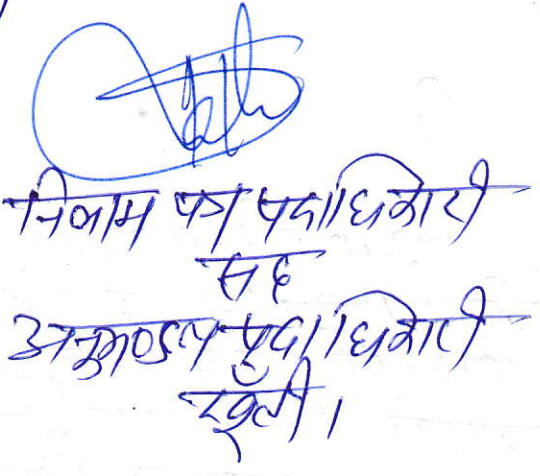 निलाम पत्र पदाधिकारी
सह
अनुमण्डल पदाधिकारी
खूँटी।